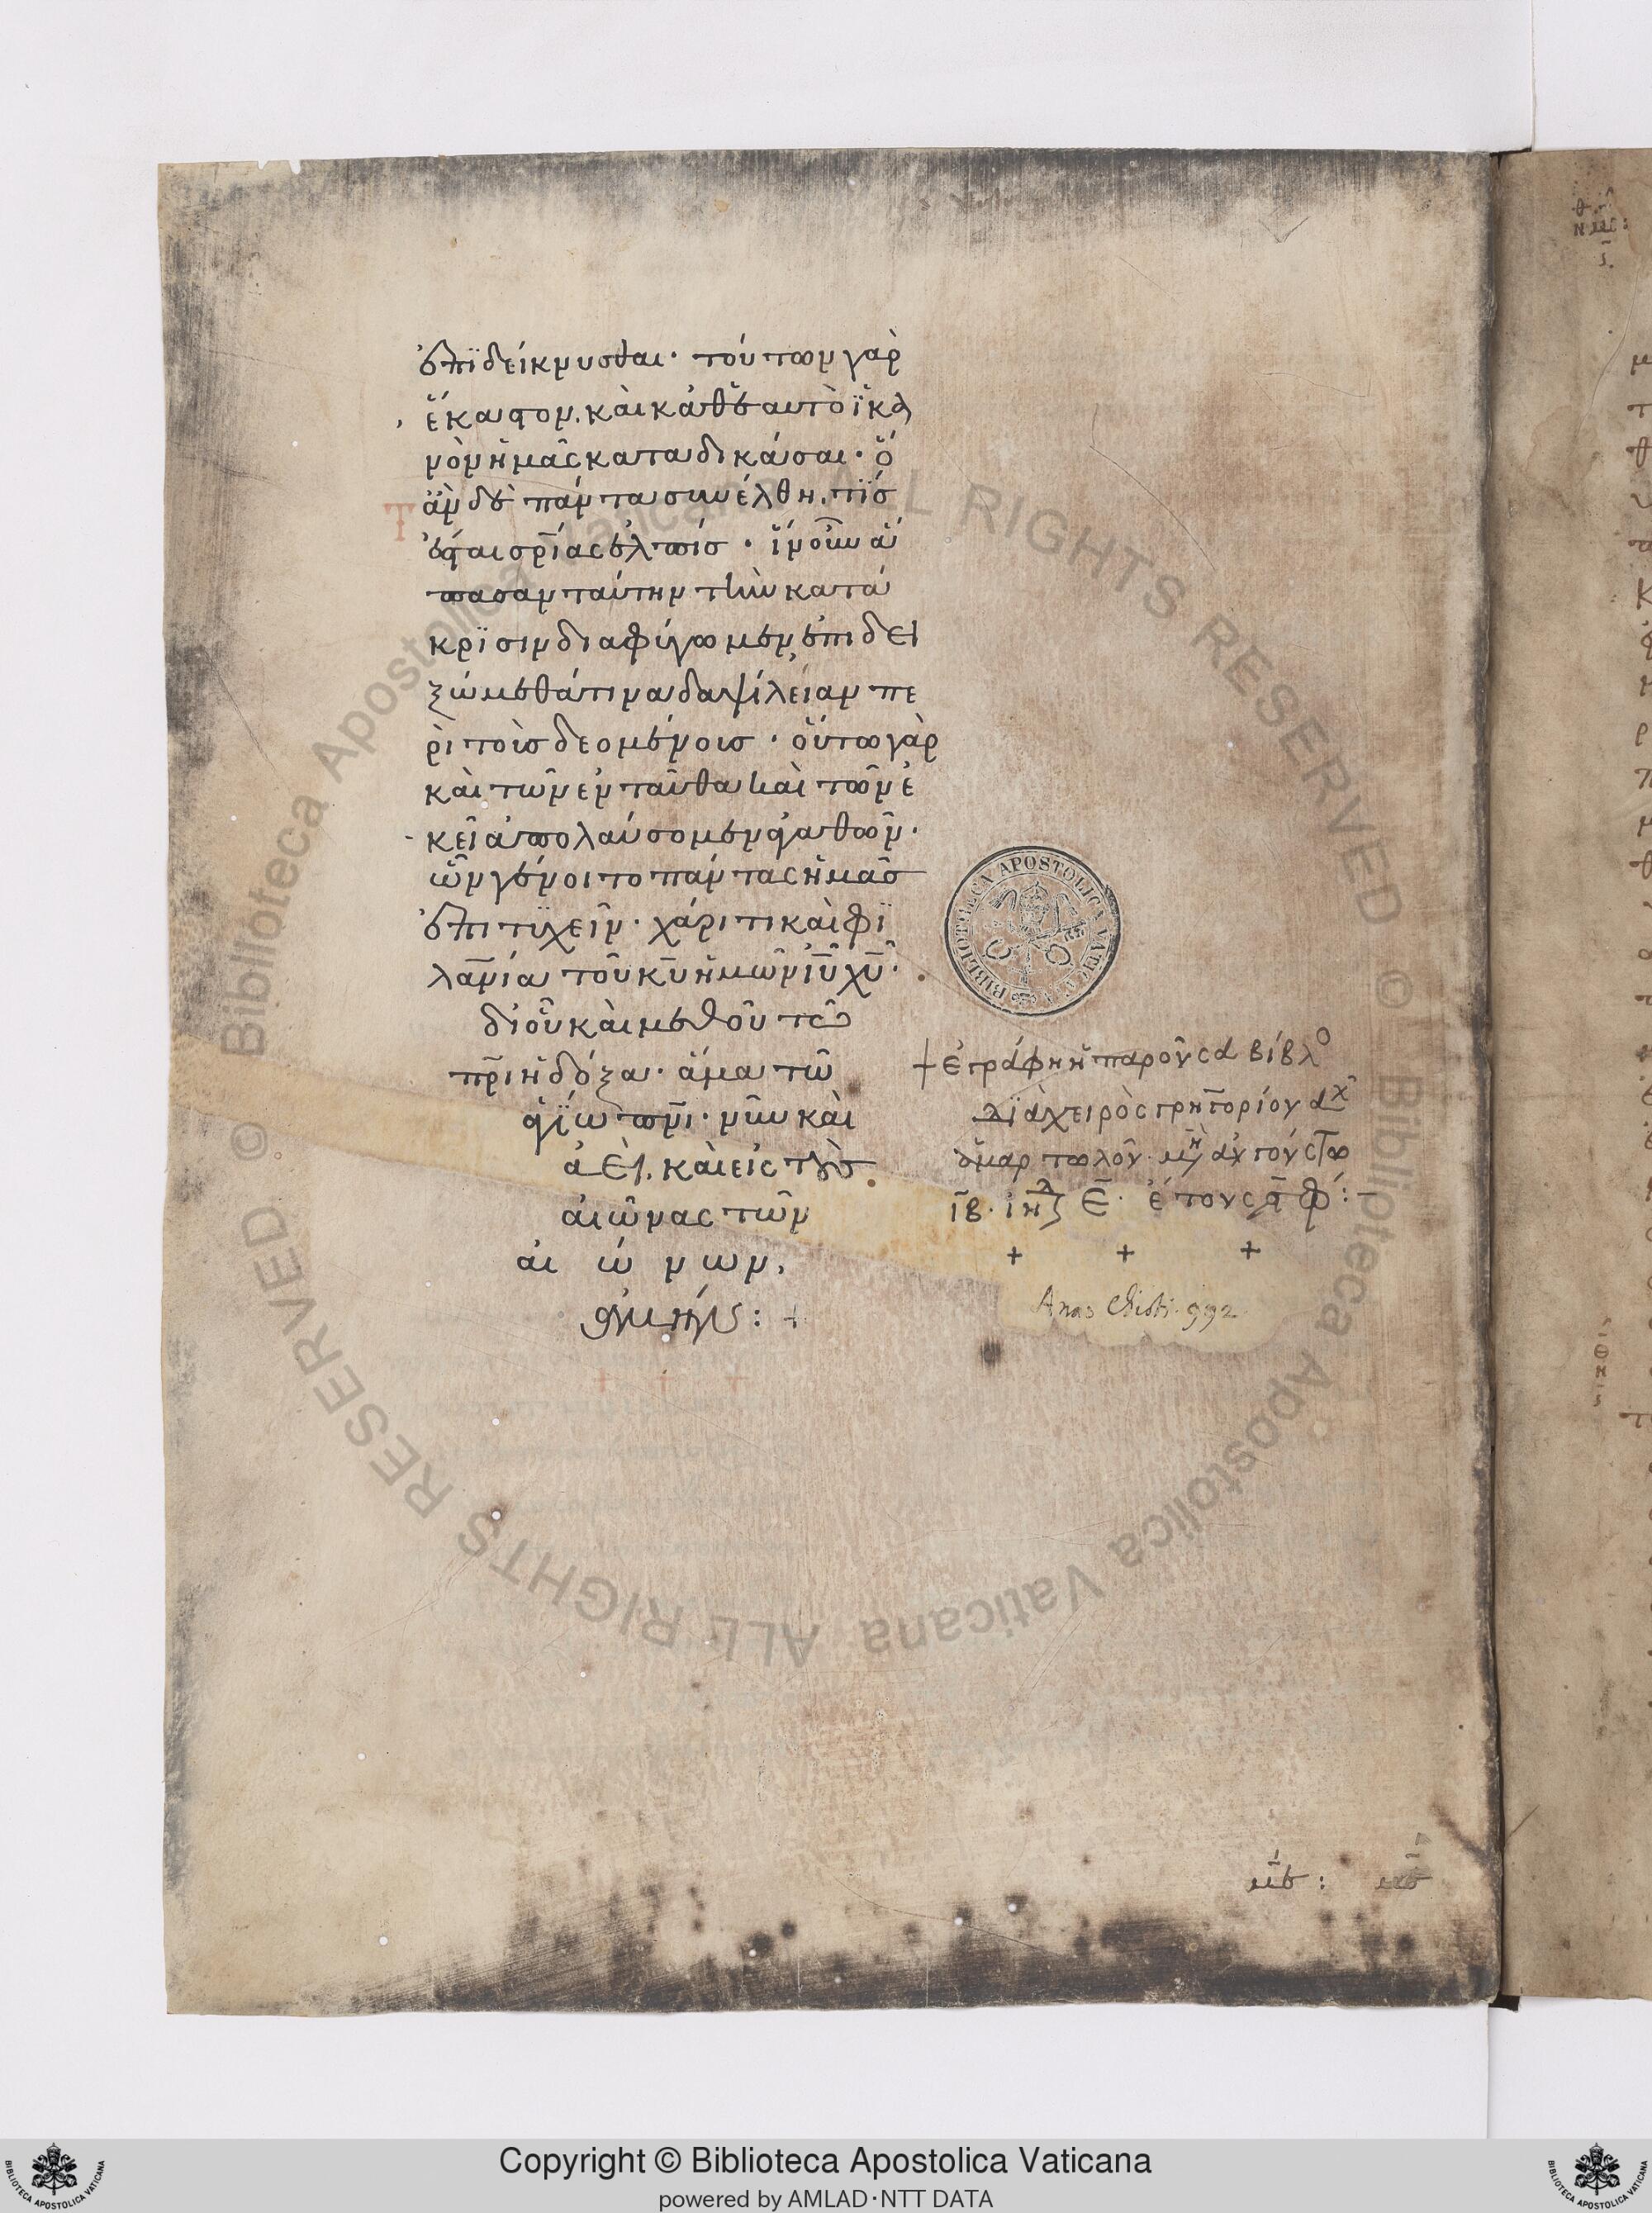 ἐπϊδείκνυσθαι· τούτων γὰρ
ἕκαστον. καὶ καθ' ἑαυτὸ ϊκα
νὸν ἡμᾶς καταδικάσαι· ὅ
ἂν δὲ πάντα συνέλθη. τίσ
ἔσται σρίας ἐλπίσ· ἵν' οὖν ἅ
πασαν ταύτην τὴν κατά
κρϊσιν διαφύγωμεν, ἐπιδει
ξώμεθά τινα δαψίλειαν πε
ρὶ τοὶσ δεομένοισ· οὕτω γὰρ
καὶ τῶν ἐνταῦθα καὶ τῶν ἐ
κεῖ ἀπολαύσομεν ἀγαθῶν·
ὧν γένοιτο πάντας ἡμᾶσ
ἐπιτϋχεῖν· χάριτι καὶ φϊ
λανία τοῦ κυ ἡμῶν ιυ χυ·
δι' οὗ καὶ μεθ' οὗ τῶ
πρι ἡ δόξα· ἅμα τῶ
ἁγίω πνι· νῦν καὶ
ἀεὶ. καὶ εἰς τοὺσ
αἰῶνας τῶν
αἰώνων,
ἀμήν: +
+ ἐγράφη ἡ παροῦσα βίβλο
δϊὰ χειρὸς γρηγορίου αχ
ἁμαρτωλοῦ· μη αὐγούστω
ιβ· ἰνδ ε· ἔτους ϛφ:-
+ + +
Anas Christi 992
με: με
Copyright © Biblioteca Apostolica Vaticana
powered by AMLAD·NTT DATA